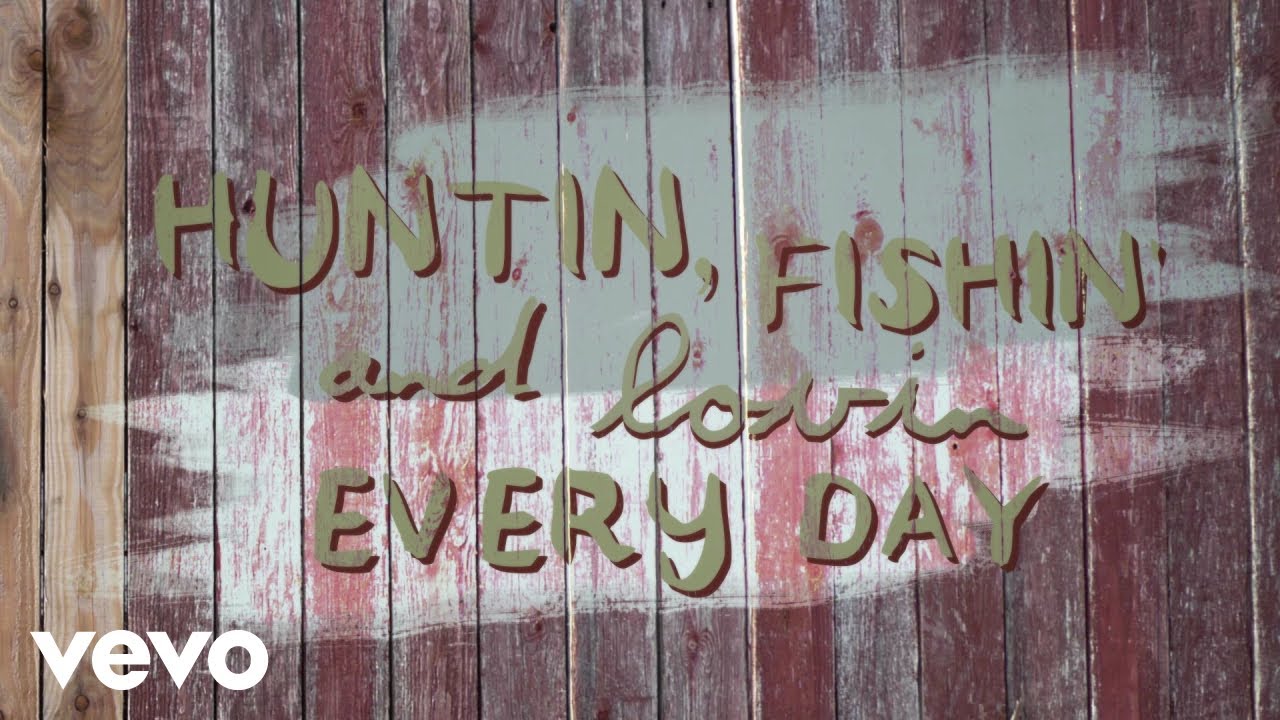 HUNTIN, FISHIN'
and lovin
EVERY DAY
vevo